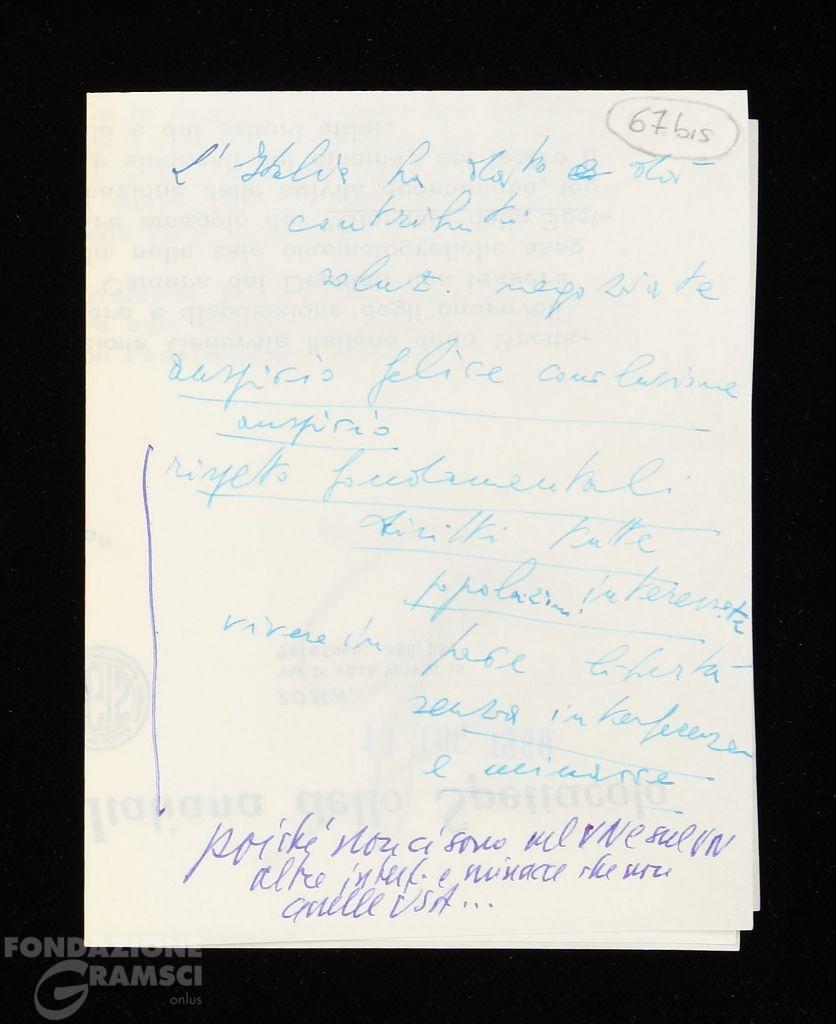 67 bis
L'Italia ha dato e dà
contributi
soluz. negoziate
auspicio felice conclusione
auspicio
rispetto fondamentali
diritti tutte
popolazioni interessate
vivere in pace libertà
senza interferenze
e minacce
poiché non ci sono nel VN e sul VN
altre interf. e minacce che non
quelle USA...
FONDAZIONE
GRAMSCI
onlus